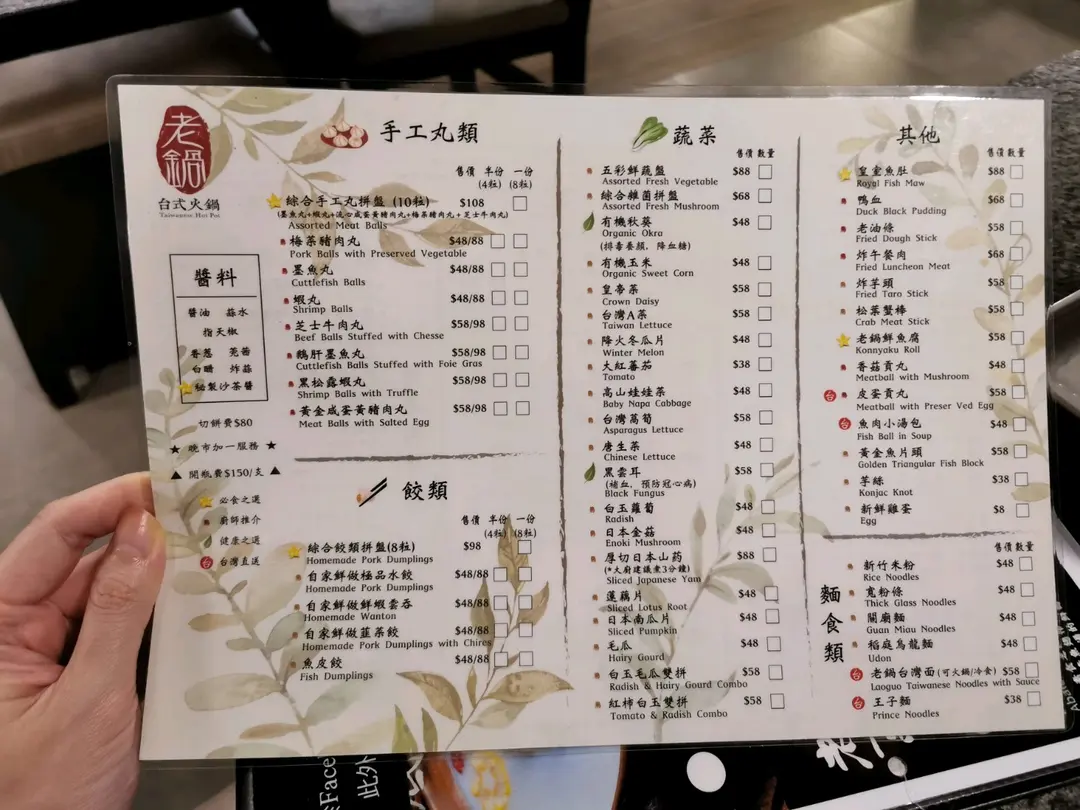 老鍋
台式火鍋
Taiwanese Hot Pot
醬料
醬油 蒜水
指天椒
香蔥 芫茜
白醋 炸蒜
秘製沙茶醬
切餅費$80
★ 晚市加一服務 ★
▲ 開瓶費$150/支 ▲
必食之選
廚師推介
健康之選
台 台灣直送
手工丸類
售價 半份 一份
(4粒) (8粒)
綜合手工丸拼盤 (10粒) $108
(墨魚丸+蝦丸+流心咸蛋黃豬肉丸+梅菜豬肉丸+芝士牛肉丸)
Assorted Meat Balls
梅菜豬肉丸 $48/88
Pork Balls with Preserved Vegetable
墨魚丸 $48/88
Cuttlefish Balls
蝦丸 $48/88
Shrimp Balls
芝士牛肉丸 $58/98
Beef Balls Stuffed with Chesse
鵝肝墨魚丸 $58/98
Cuttlefish Balls Stuffed with Foie Gras
黑松露蝦丸 $58/98
Shrimp Balls with Truffle
黃金咸蛋黃豬肉丸 $58/98
Meat Balls with Salted Egg
餃類
售價 半份 一份
(4粒) (8粒)
綜合餃類拼盤(8粒) $98
Homemade Pork Dumplings
自家鮮做極品水餃 $48/88
Homemade Pork Dumplings
自家鮮做鮮蝦雲吞 $48/88
Homemade Wanton
自家鮮做韮菜餃 $48/88
Homemade Pork Dumplings with Chires
魚皮餃 $48/88
Fish Dumplings
蔬菜
售價 數量
五彩鮮蔬盤 $88
Assorted Fresh Vegetable
綜合雜菌拼盤 $68
Assorted Fresh Mushroom
有機秋葵 $48
Organic Okra
(排毒養顏, 降血糖)
有機玉米 $48
Organic Sweet Corn
皇帝菜 $58
Crown Daisy
台灣A菜 $58
Taiwan Lettuce
降火冬瓜片 $48
Winter Melon
大紅蕃茄 $38
Tomato
高山娃娃菜 $48
Baby Napa Cabbage
台灣萵筍 $58
Asparagus Lettuce
唐生菜 $48
Chinese Lettuce
黑雲耳 $58
(補血, 預防冠心病)
Black Fungus
白玉蘿蔔 $48
Radish
日本金菇 $48
Enoki Mushroom
厚切日本山药 $88
(*大廚建議煮3分鐘)
Sliced Japanese Yam
蓮藕片 $48
Sliced Lotus Root
日本南瓜片 $48
Sliced Pumpkin
毛瓜 $48
Hairy Gourd
白玉毛瓜雙拼 $58
Radish & Hairy Gourd Combo
紅柿白玉雙拼 $58
Tomato & Radish Combo
其他
售價 數量
皇室魚肚 $88
Royal Fish Maw
鴨血 $68
Duck Black Pudding
老油條 $58
Fried Dough Stick
炸午餐肉 $68
Fried Luncheon Meat
炸芋頭 $58
Fried Taro Stick
松葉蟹棒 $58
Crab Meat Stick
老鍋鮮魚腐 $58
Konnyaku Roll
香菇貢丸 $48
Meatball with Mushroom
台 皮蛋貢丸 $58
Meatball with Preser Ved Egg
台 魚肉小湯包 $48
Fish Ball in Soup
黃金魚片頭 $58
Golden Triangular Fish Block
芋絲 $38
Konjac Knot
新鮮雞蛋 $8
Egg
麵食類
售價 數量
新竹米粉 $48
Rice Noodles
寬粉條 $48
Thick Glass Noodles
關廟麵 $48
Guan Miau Noodles
稻庭烏龍麵 $48
Udon
台 老鍋台灣面(可火鍋/冷食) $58
Laoguo Taiwanese Noodles with Sauce
台 王子麵 $38
Prince Noodles
Face
此外